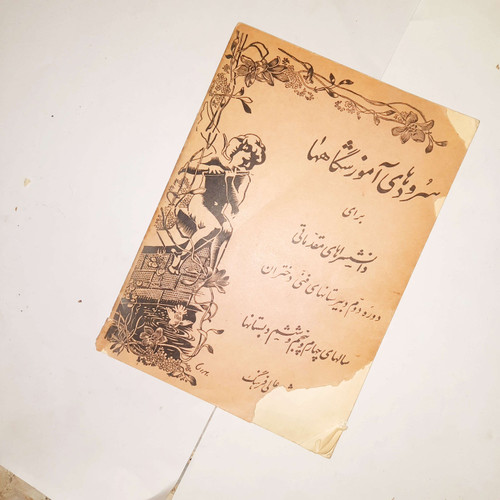 سرودهای آموزشگاهها
برای
دانشسراهای مقدماتی
دوره دوم دبیرستانهای فنی دختران
سالهای چهارم و پنجم و ششم دبستانها
عالی فرهنگ